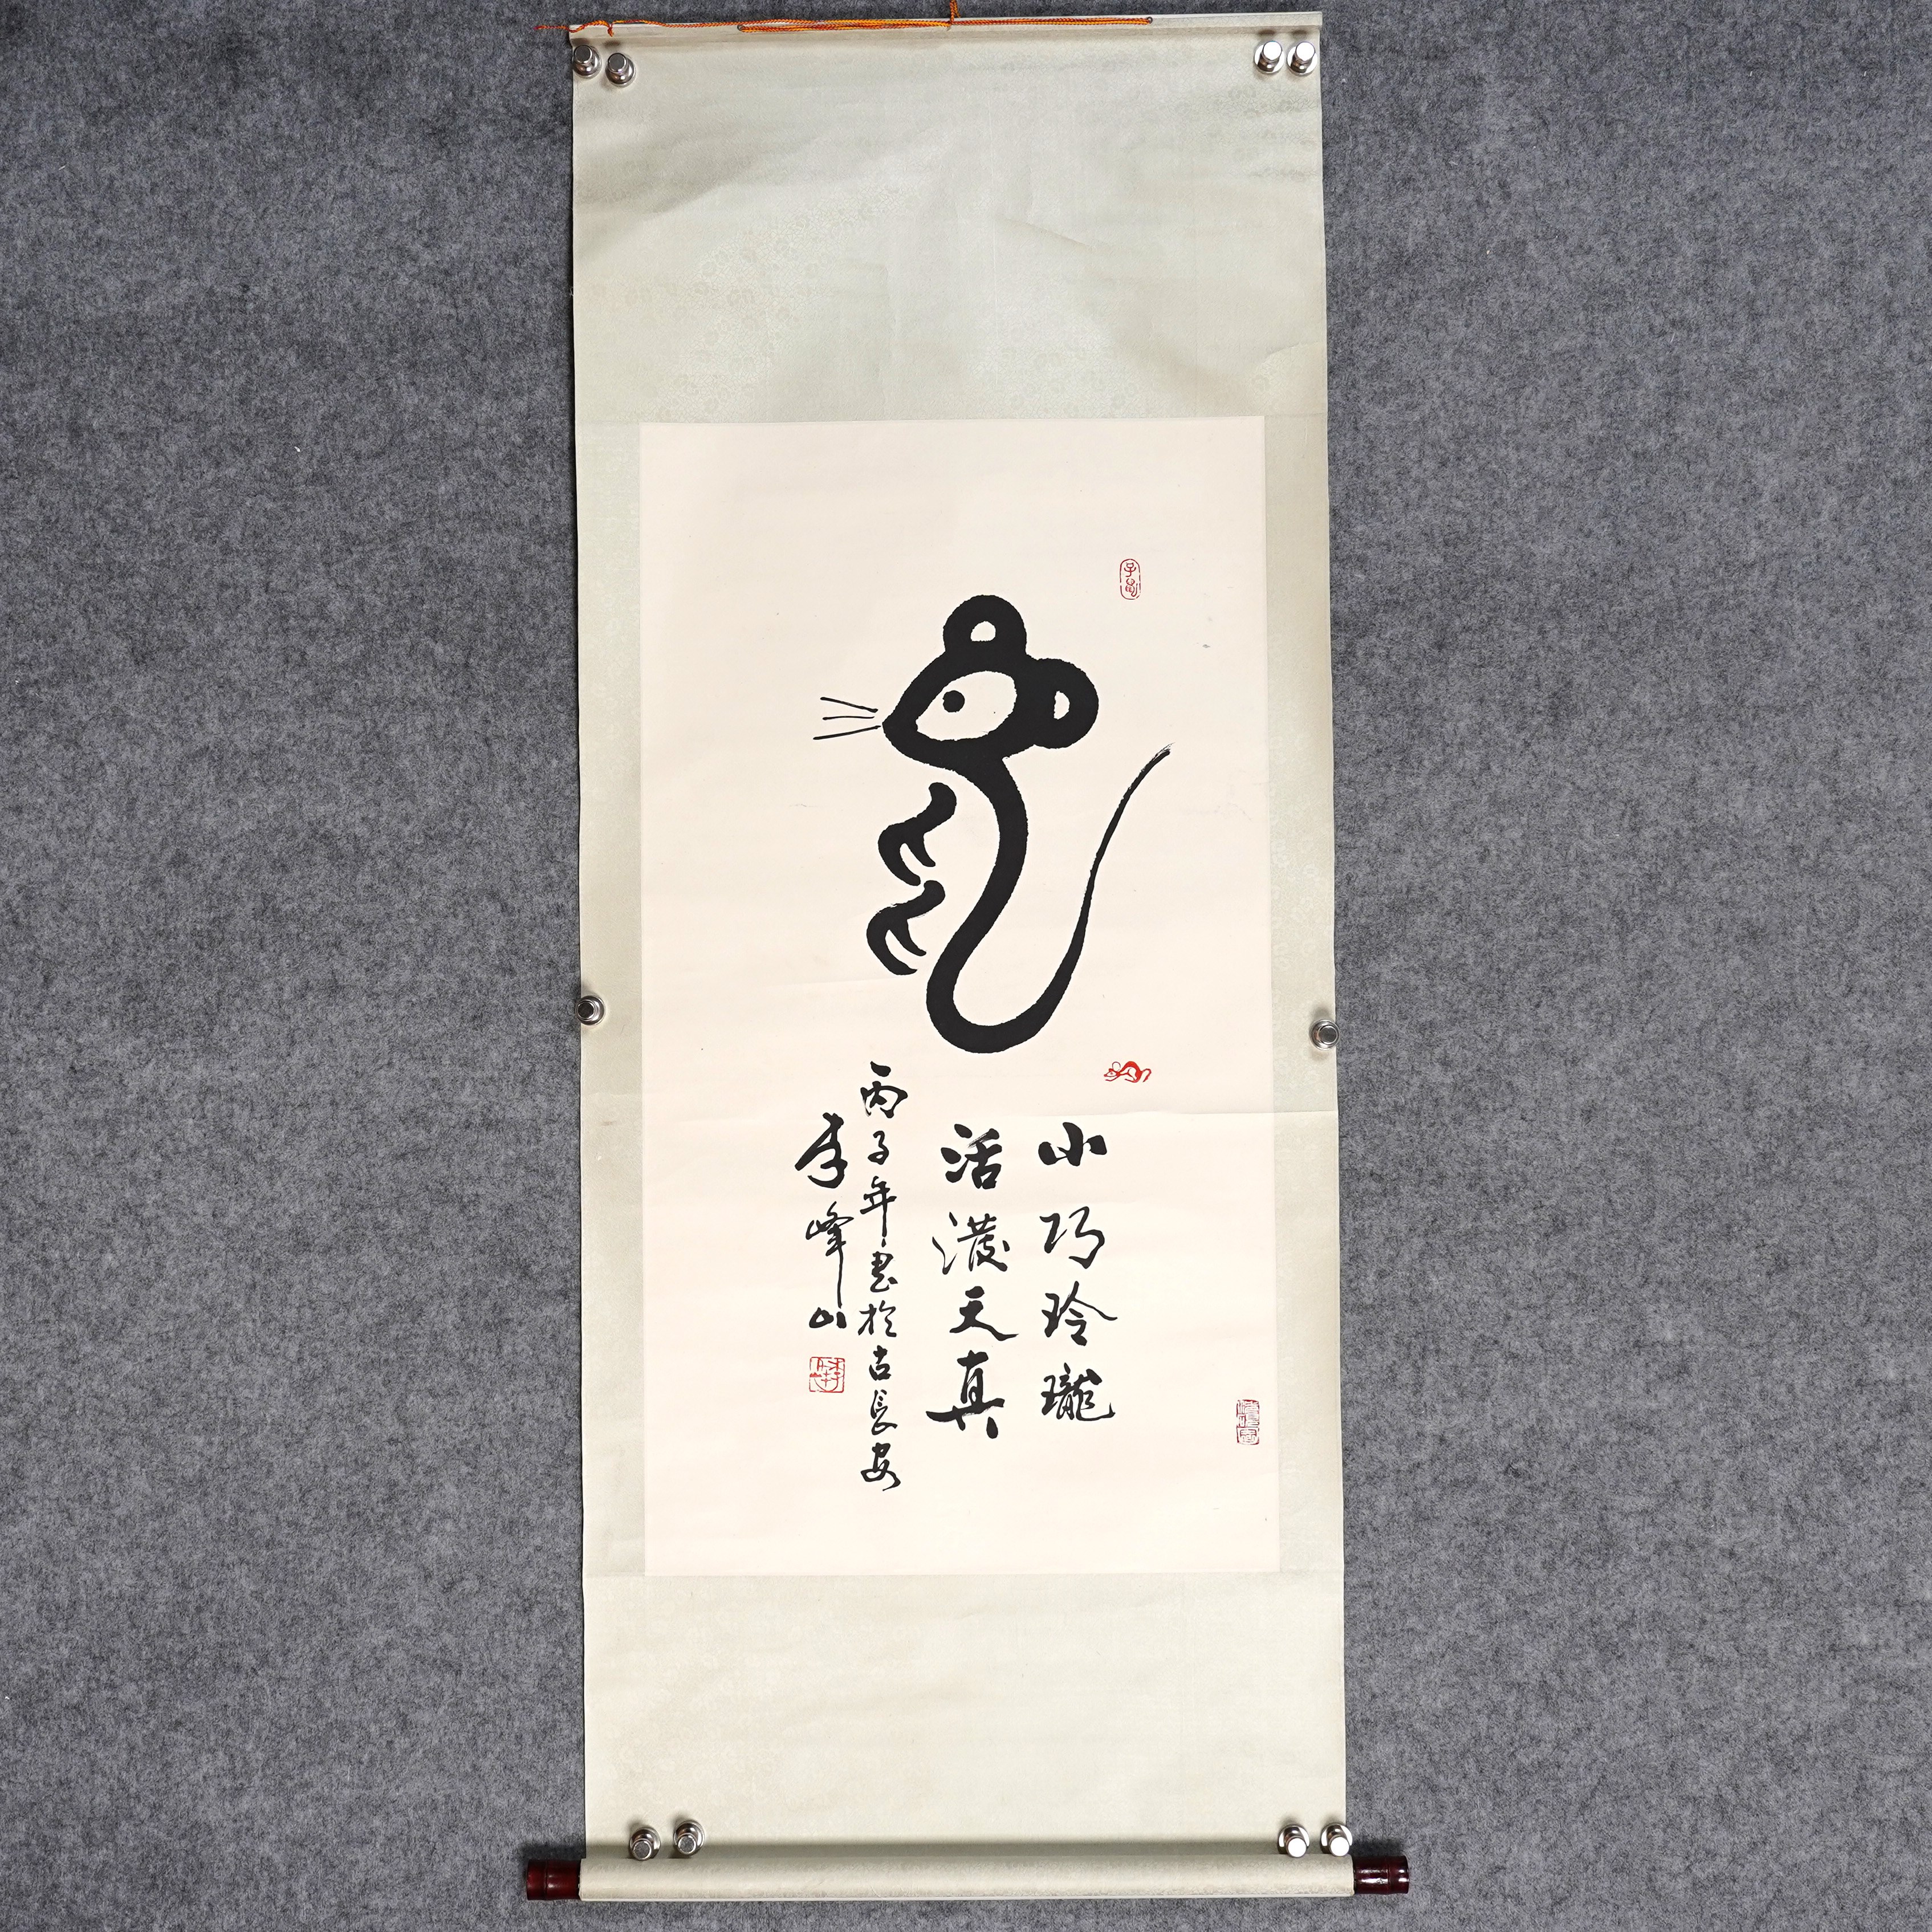 小巧玲瓏
活潑天真
丙子年書於古長安
李峰山